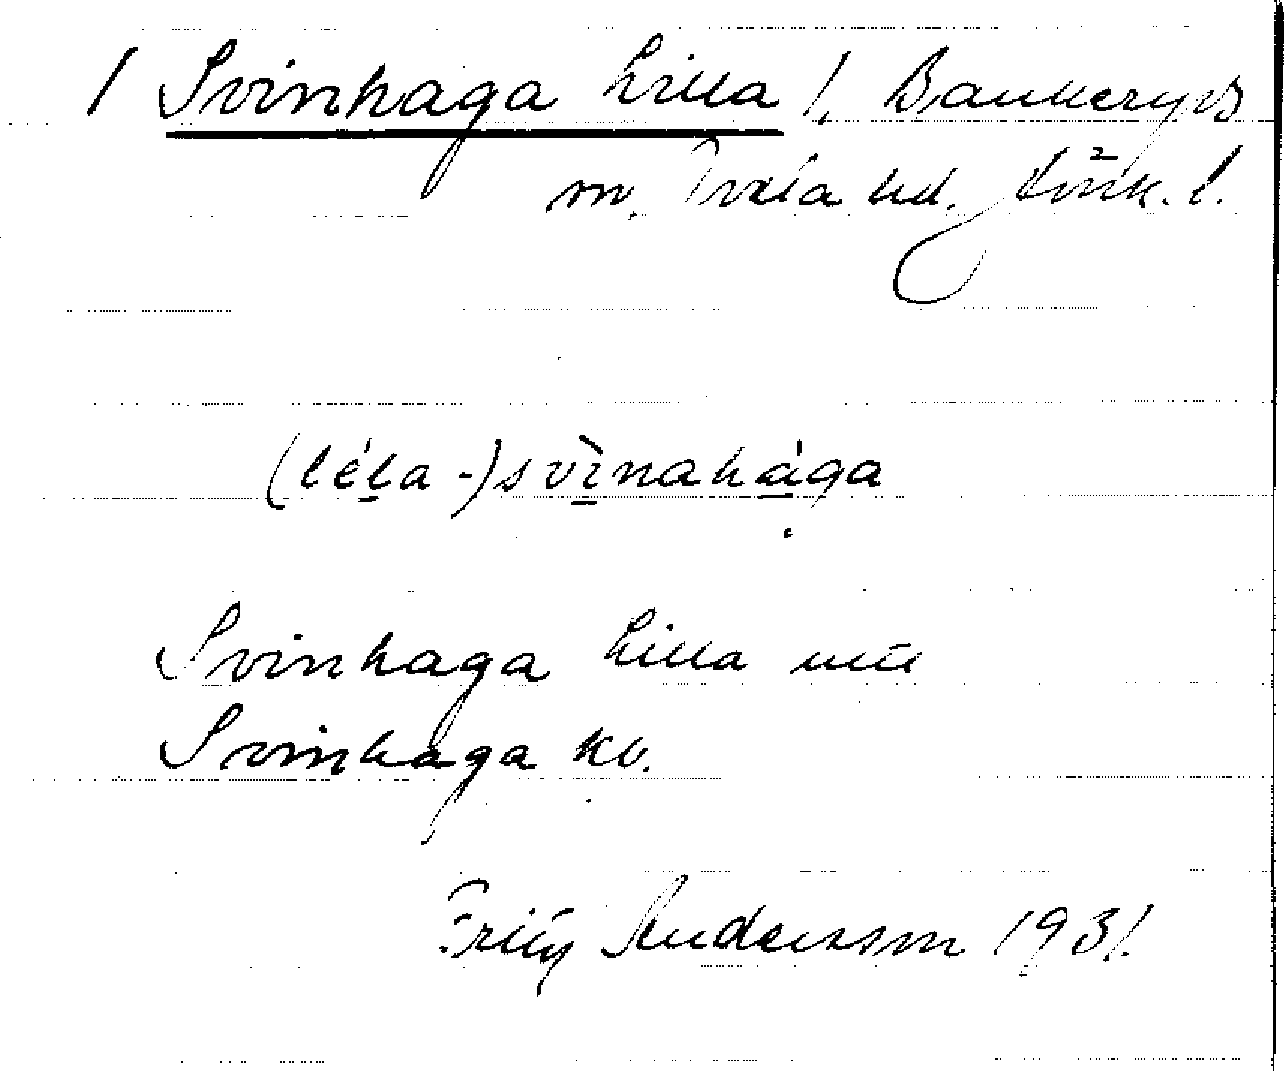 / Svinhaga Lilla /, Bankeryds
sn. Tveta hd. Jönk. l.
(lé̱la-)svì̱nahá̱ga
Svinhaga Lilla
Svinhaga kv.
Fritz Andersson 1931.